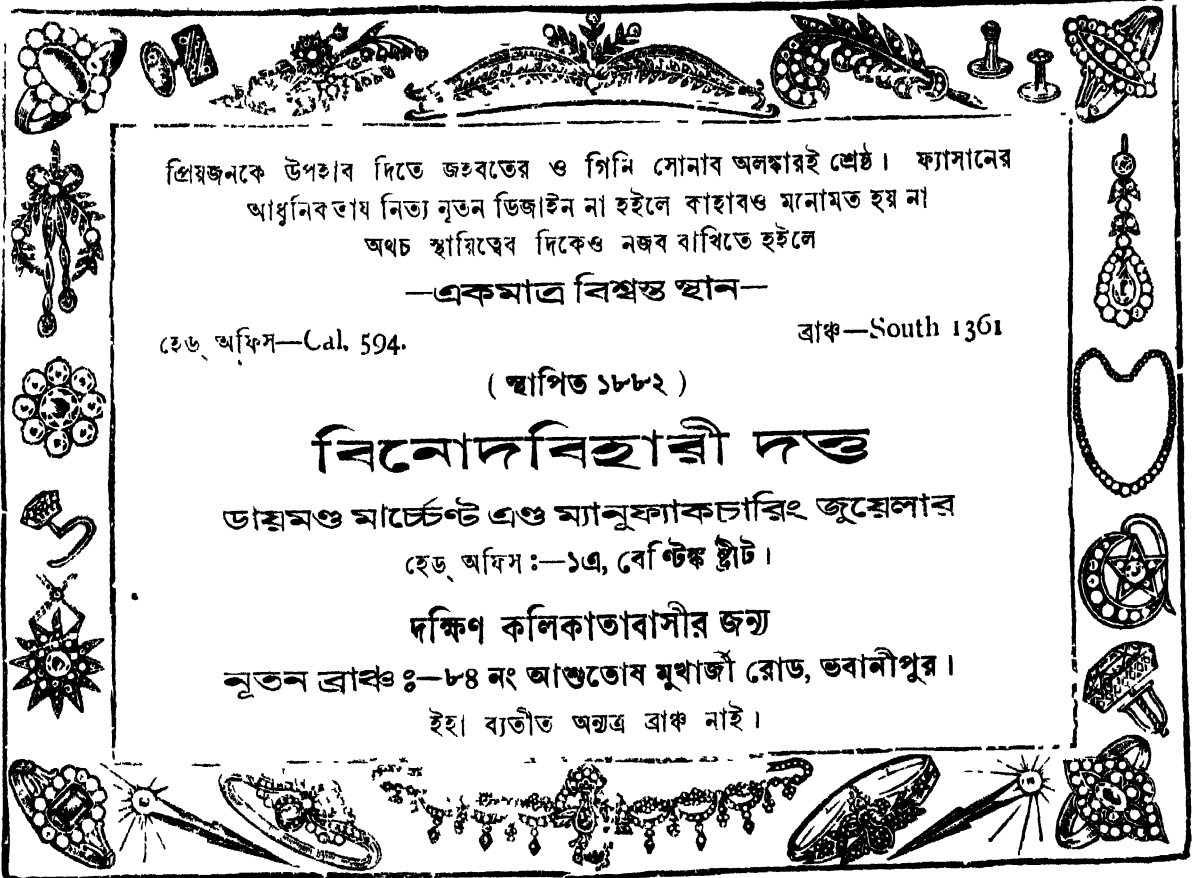 প্রিয়জনকে উপহাব দিতে জহবতের ও গিনি সোনাব অলঙ্কারই শ্রেষ্ঠ। ফ্যাসানের
আধুনিকতায নিত্য নূতন ডিজাইন না হইলে কাহাবও মনোমত হয় না
অথচ স্থায়িত্বেব দিকেও নজব বাখিতে হইলে
—একমাত্র বিশ্বস্ত স্থান—
হেড্ অফিস—Cal. 594. ব্রাঞ্চ—South 1361
( স্থাপিত ১৮৮২ )
বিনোদবিহারী দত্ত
ডায়মণ্ড মার্চ্চেণ্ট এণ্ড ম্যানুফ্যাকচারিং জুয়েলার
হেড্ অফিস :—১এ, বেণ্টিঙ্ক ষ্ট্রীট।
দক্ষিণ কলিকাতাবাসীর জন্য
নূতন ব্রাঞ্চ :—৮৪ নং আশুতোষ মুখার্জী রোড, ভবানীপুর।
ইহা ব্যতীত অন্যত্র ব্রাঞ্চ নাই।